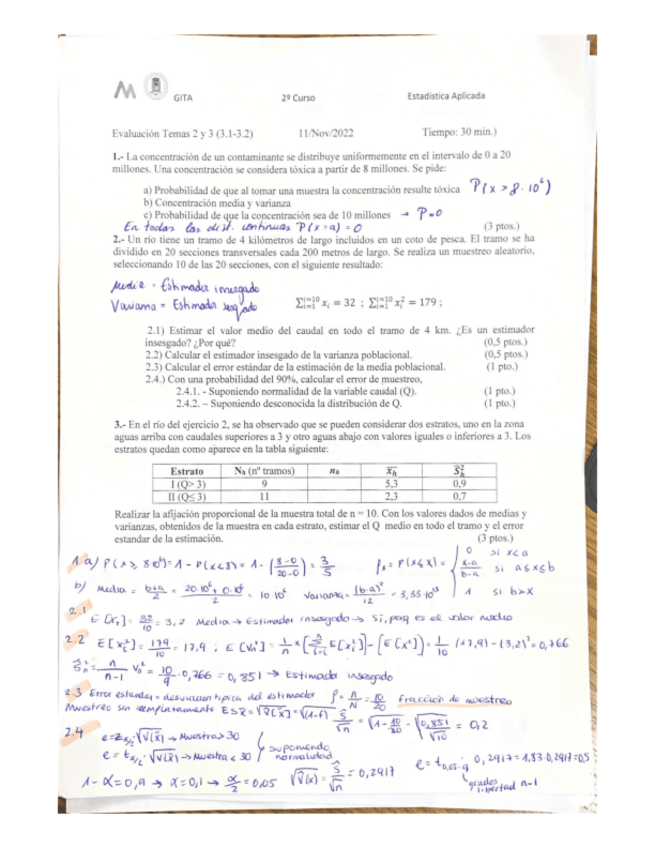 GITA 2º Curso Estadística Aplicada
Evaluación Temas 2 y 3 (3.1-3.2) 11/Nov/2022 Tiempo: 30 min.)
1.- La concentración de un contaminante se distribuye uniformemente en el intervalo de 0 a 20
millones. Una concentración se considera tóxica a partir de 8 millones. Se pide:
a) Probabilidad de que al tomar una muestra la concentración resulte tóxica P(x > 8·10⁶)
b) Concentración media y varianza
c) Probabilidad de que la concentración sea de 10 millones → P=0
En todas las dist. continuas P(x=a)=0 (3 ptos.)
2.- Un río tiene un tramo de 4 kilómetros de largo incluidos en un coto de pesca. El tramo se ha
dividido en 20 secciones transversales cada 200 metros de largo. Se realiza un muestreo aleatorio,
seleccionando 10 de las 20 secciones, con el siguiente resultado:
Media = Estimador insesgado
Varianza = Estimador sesgado
∑ᵢ₌₁ⁱ⁼¹⁰ xᵢ = 32 ; ∑ᵢ₌₁ⁱ⁼¹⁰ xᵢ² = 179 ;
2.1) Estimar el valor medio del caudal en todo el tramo de 4 km. ¿Es un estimador
insesgado? ¿Por qué? (0,5 ptos.)
2.2) Calcular el estimador insesgado de la varianza poblacional. (0,5 ptos.)
2.3) Calcular el error estándar de la estimación de la media poblacional. (1 pto.)
2.4.) Con una probabilidad del 90%, calcular el error de muestreo,
2.4.1. - Suponiendo normalidad de la variable caudal (Q). (1 pto.)
2.4.2. – Suponiendo desconocida la distribución de Q. (1 pto.)
3.- En el río del ejercicio 2, se ha observado que se pueden considerar dos estratos, uno en la zona
aguas arriba con caudales superiores a 3 y otro aguas abajo con valores iguales o inferiores a 3. Los
estratos quedan como aparece en la tabla siguiente:
Estrato Nₕ (nº tramos) nₕ x̄ₕ Ŝₕ²
I (Q> 3) 9 5,3 0,9
II (Q≤ 3) 11 2,3 0,7
Realizar la afijación proporcional de la muestra total de n = 10. Con los valores dados de medias y
varianzas, obtenidos de la muestra en cada estrato, estimar el Q medio en todo el tramo y el error
estandar de la estimación. (3 ptos.)
1. a) P(x ≥ 8·10⁶) = 1 - P(x<8) = 1 - (8-0/20-0) = 3/5 fₓ = P(x≤x) = { 0 si x<a
x-a/b-a si a≤x≤b
1 si b>x
b) Media = b+a/2 = 20·10⁶+0·10⁶/2 = 10·10⁶ Varianza = (b-a)²/12 = 3,33·10¹³
2.1
E[x̄] = 32/10 = 3,2 Media → Estimador insesgado → Si, porq es el valor medio
2.2 E[xᵢ²] = 179/10 = 17,9 ; = (17,9) - (3,2)² = 0,766
Ŝₙ² = n/n-1 Vₙ² = 10/9 · 0,766 = 0,851 → Estimador insesgado
2.3 Error estandar = desviacion tipica del estimador f = n/N = 10/20 Fracción de muestreo
Muestreo sin reemplazamiento = √(1-f) · Ŝ/√n = √1-10/20 · √0,851/√10 = 0,2
2.4 e = z α/2 · √V(x̄) → Muestra > 30
e = t α/2 · √V(x̄) → Muestra < 30 suponiendo normalidad
e = t 0,05; 9 · 0,2917 = 1,83·0,2917 = 0,5
grados libertad n-1
1-α = 0,9 → α = 0,1 → α/2 = 0,05 √V̂(x̄) = Ŝ/√n = 0,2917